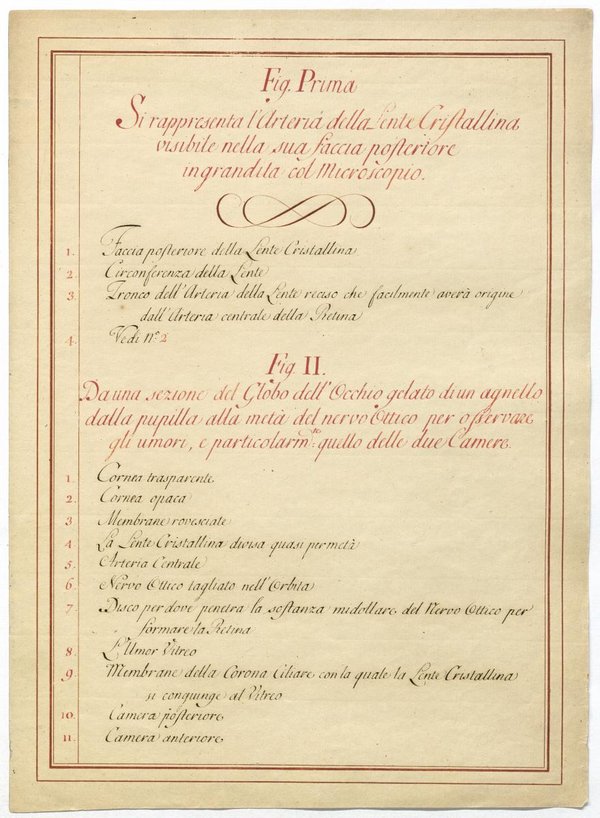 Fig. Prima
Si rappresenta l'Arteria della Lente Cristallina
visibile nella sua faccia posteriore
ingrandita col Microscopio.
1. Faccia posteriore della Lente Cristallina
2. Circonferenza della Lente
3. Tronco dell'Arteria della Lente reciso che facilmente averà origine
dall'Arteria centrale della Retina
4. Vedi n.º 2
Fig II.
Da una sezione del Globo dell'Occhio gelato di un agnello
dalla pupilla alla metà del nervo Ottico per osservare
gli umori, e particolarm.te quello delle due Camere.
1. Cornea trasparente
2. Cornea opaca
3 Membrane rovesciate
4 La Lente Cristallina divisa quasi per metà
5. Arteria Centrale
6. Nervo Ottico tagliato nell'Orbita
7. Disco per dove penetra la sostanza midollare del Nervo Ottico per
formare la Retina
8. L'Umor Vitreo
9. Membrane della Corona Ciliare con la quale la Lente Cristallina
si congiunge al Vitreo
10. Camera posteriore
11. Camera anteriore